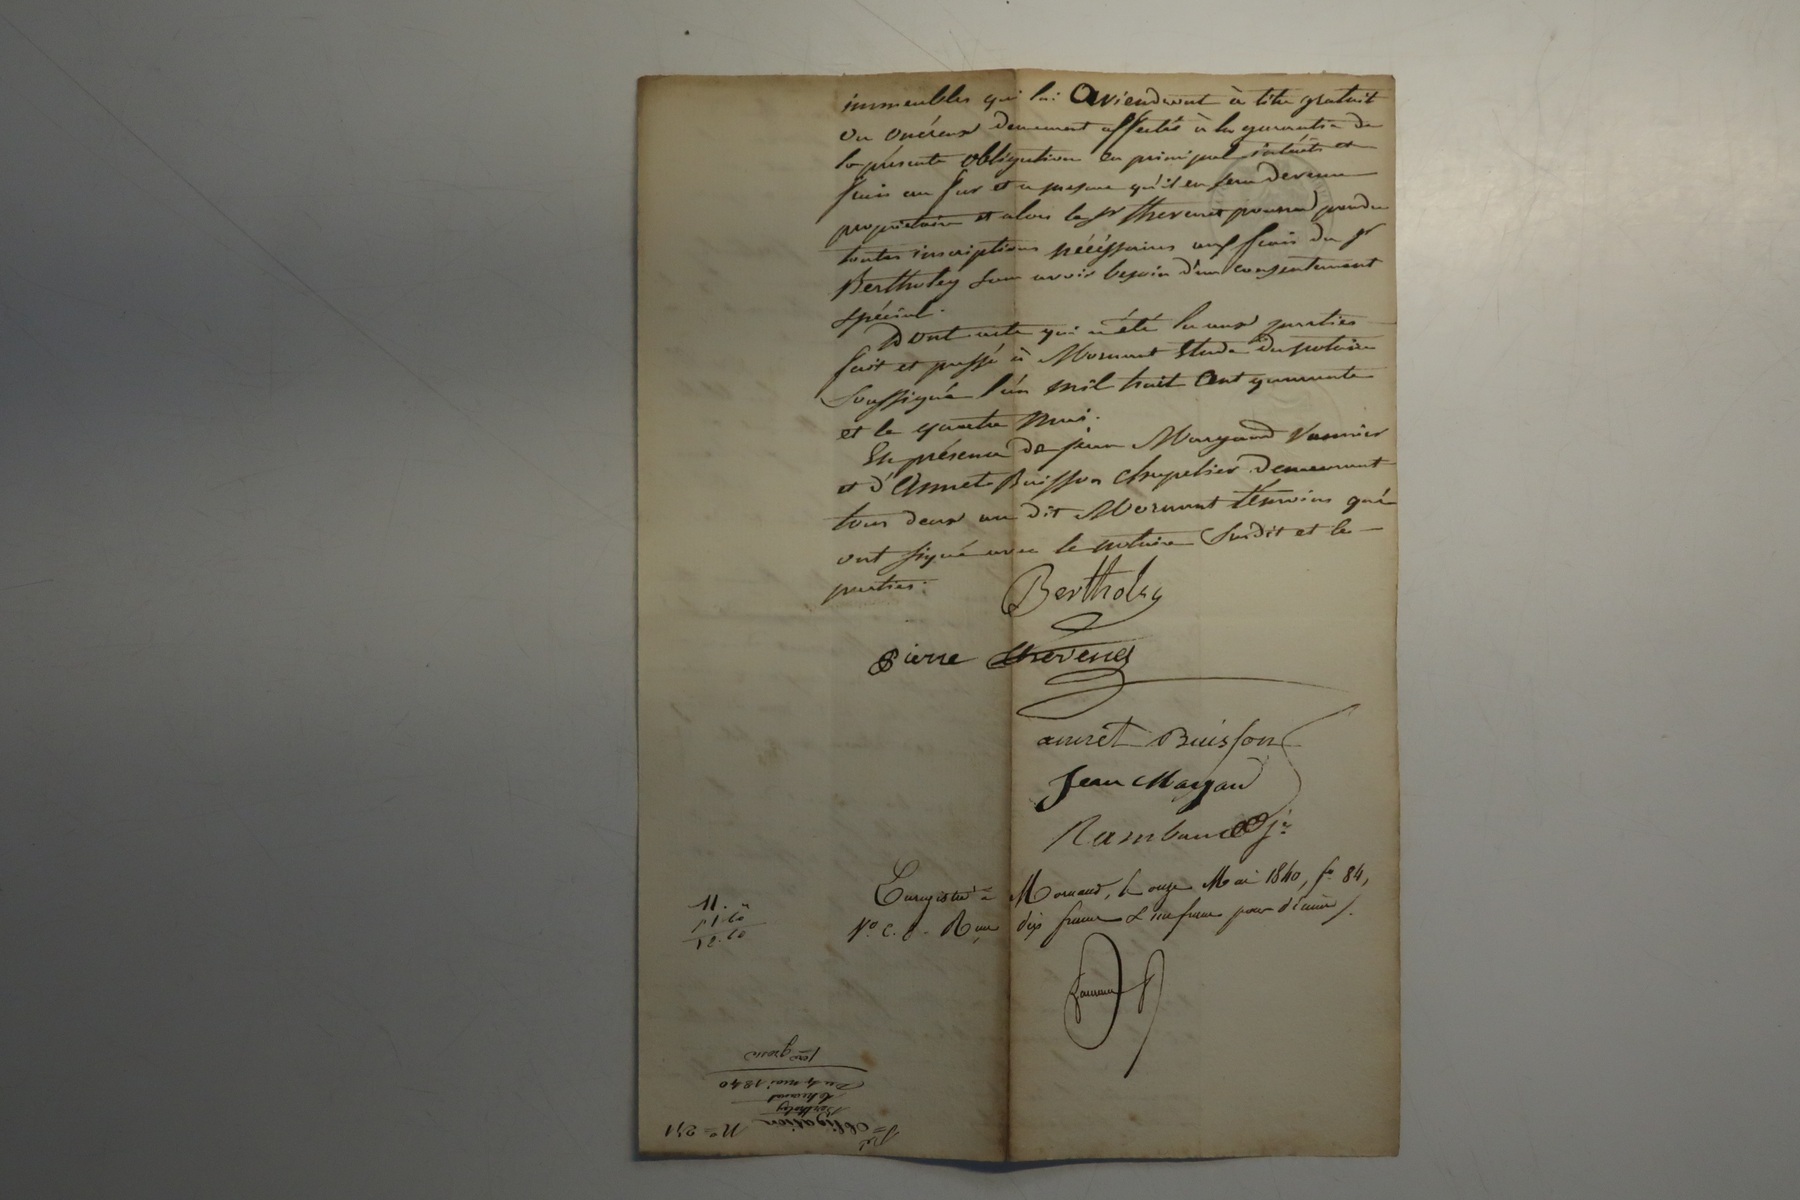 immeubles qui lui aviendront à titre gratuit
ou onéreux demeurent affectés à la garantie de
la présente obligation en principal intérêts et
frais au fur et a mesure qu'il en sera devenu
propriétaire et alors le sr Thevenet pourra prendre
toutes inscriptions nécéssaires aux frais du sr
Bertholey sans avoir besoin d'un consentement
spécial.
Dont acte qui a été lu aux parties
fait et passé à Mornant Etude du notaire
soussigné l'an mil huit cent quarante
et le quatre mai.
En présence de jean Margand vannier
et d'Annet Buisson chapelier demeurant
tous deux au dit Mornant témoins qui
ont signé avec le notaire susdit et le
parties.
Bertholey
Pierre Thevenet
annet Buisson
Jean Margand
Rambaud jne
Enregistré à Mornand, le onze Mai 1840, fo 84,
Vo c. Reçu dix francs & un franc pour décime
11. "
1.60
12.60
Rd
Obligation No 241
Bertholey
Du 4 mai 1840
1ere grosse